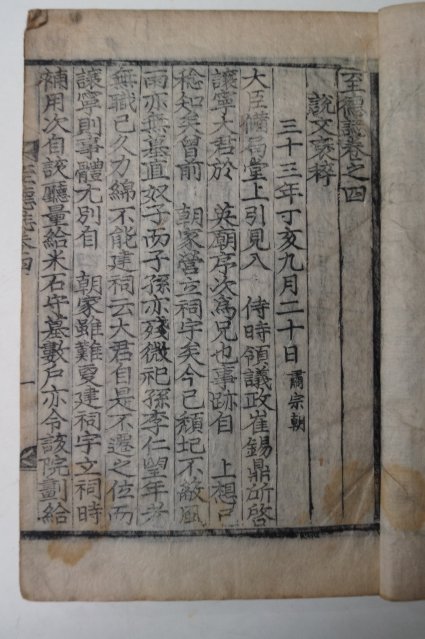 至德誌卷之四
說文裒稡
三十三年丁亥九月二十日 肅宗朝
大臣備局堂上引見入 侍時領議政崔錫鼎所啓
讓寧大君於 英廟序次爲兄也事跡自 上想已
稔知矣曾前 朝家營立祠宇矣今已頹圮不蔽風
雨亦無墓直奴子而子孫亦殘微祀孫李仁望年老
無職已久力綿不能建祠云大君自是不遷之位而
讓寧則事體尤別自 朝家雖難更建祠宇立祠時
補用次自該廳量給米石守墓數戶亦令該院劃給
至德誌卷四
一